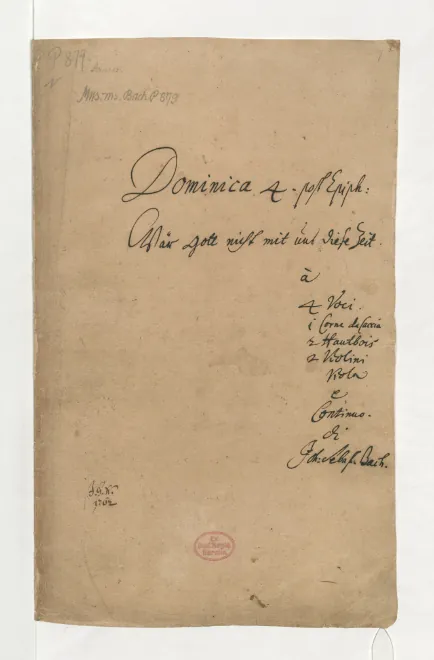 P 879
Mus. ms. Bach P 879
Dominica 4. post Epiph:
Wär Gott nicht mit uns diese Zeit.
à
4 Voci.
1 Corne du Caccia
2 Hautbois
2 Violini
Viola
e
Continuo.
di
Joh: Sebast: Bach.
1762
Ex
Biblioth. Regia
Berolin.